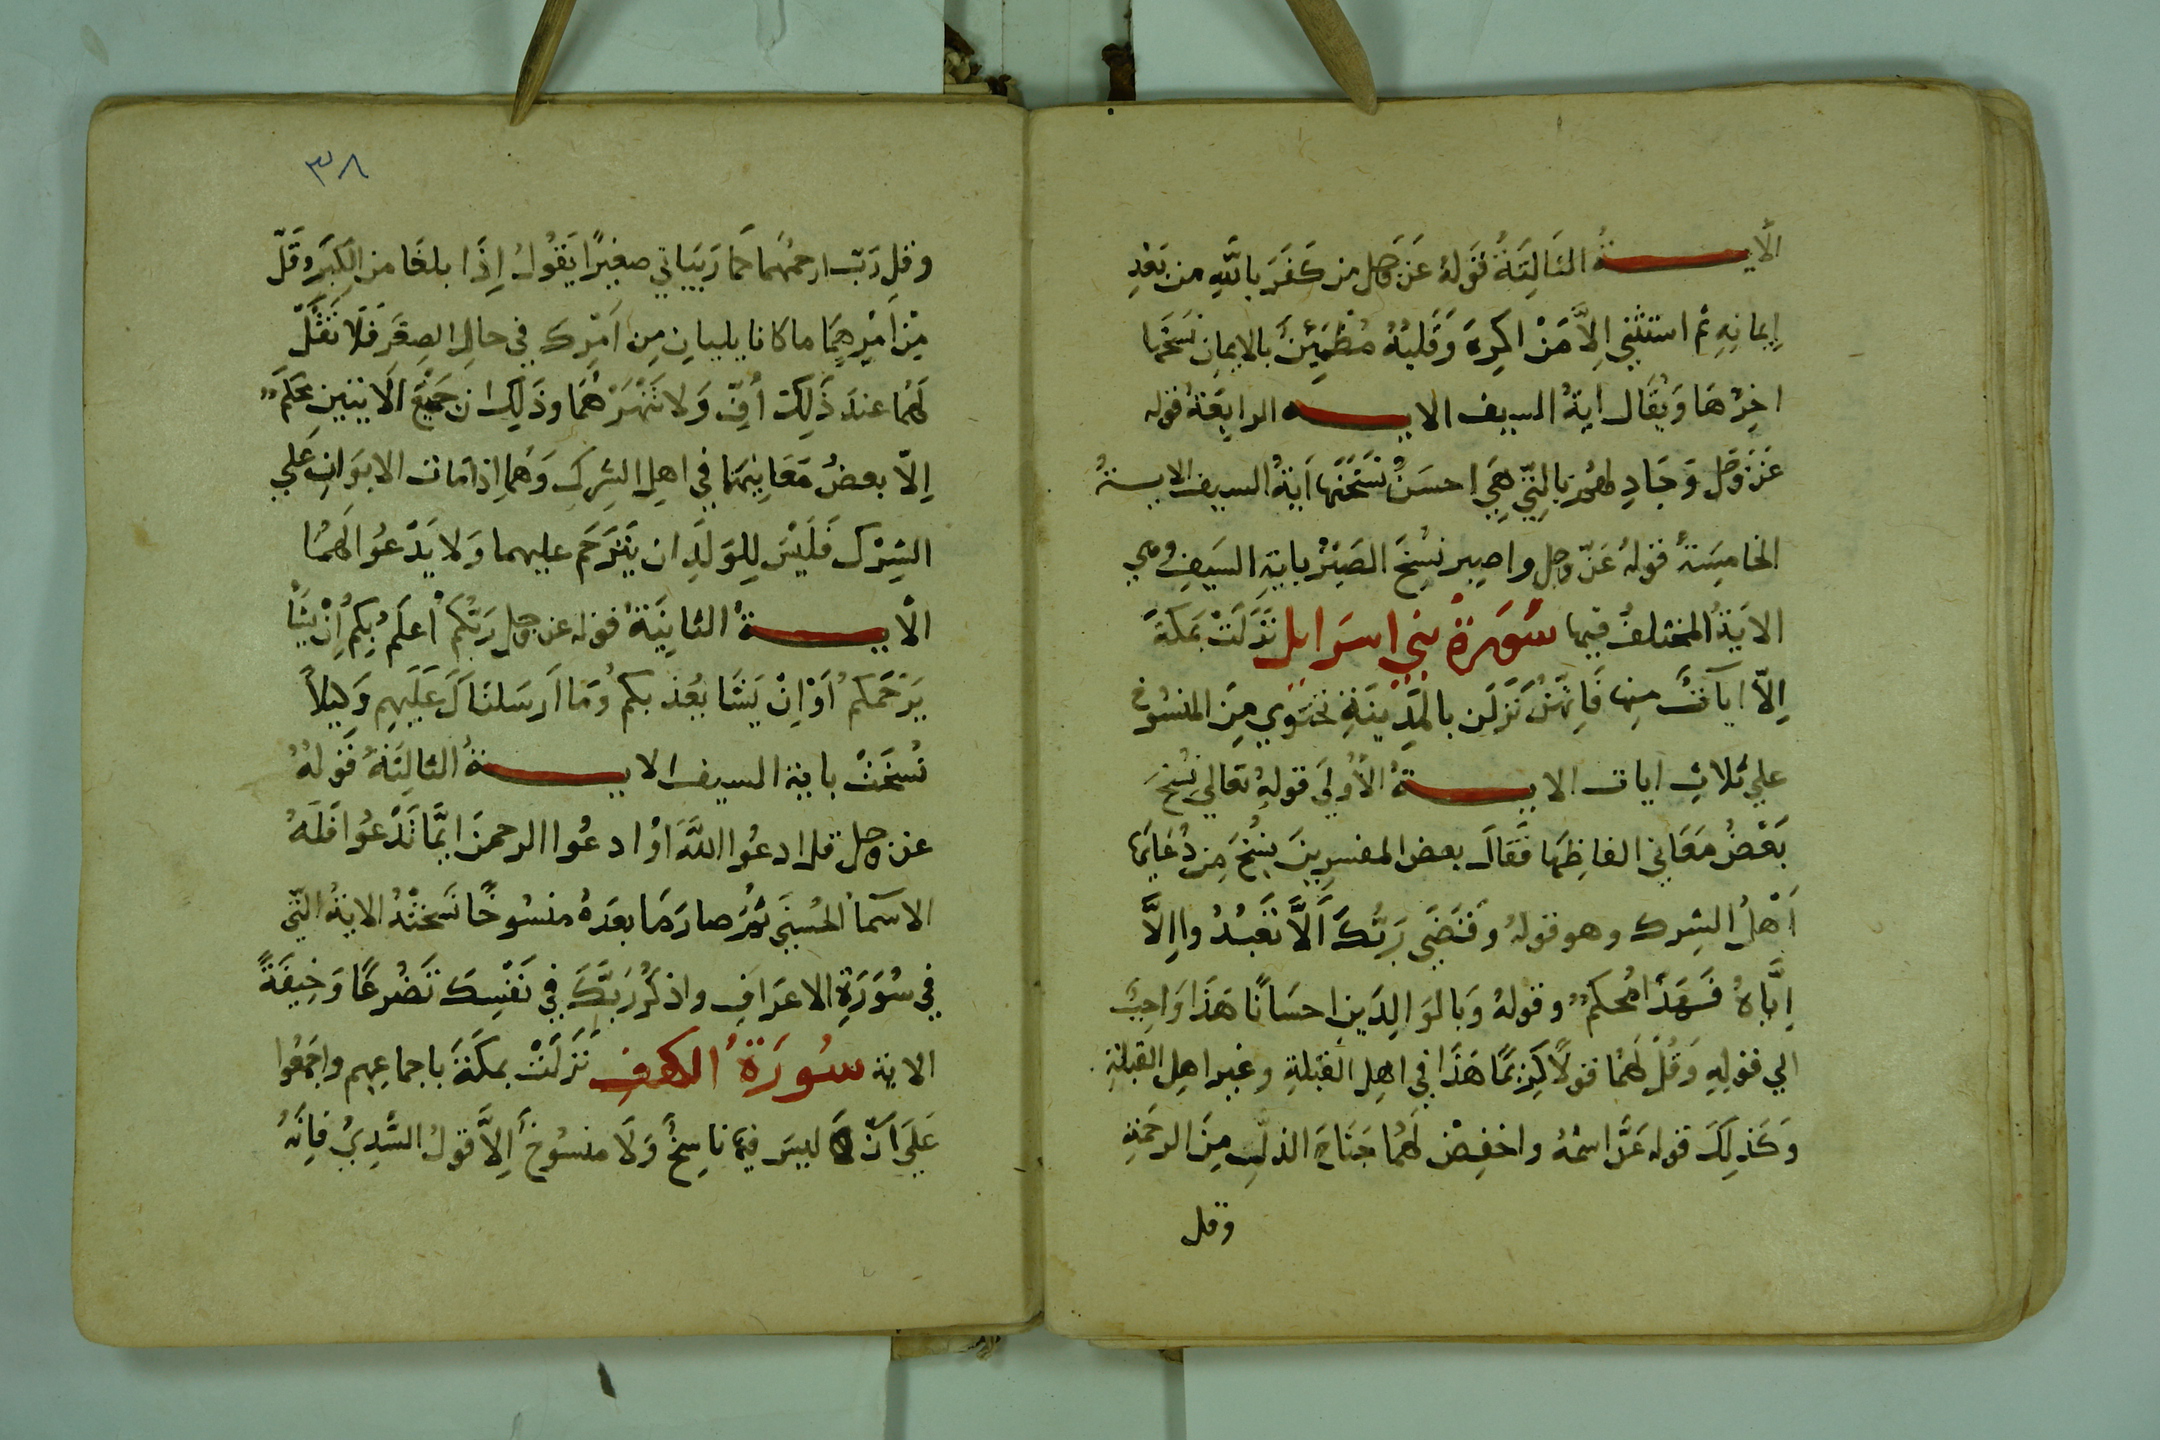 الآيــــة الثالثة قوله عز وجل من كفر بالله من بعد
إيمانه ثم استثنى إلا من اكره وقلبه مطمئن بالايمان نسخها
اخرها ويقال اية السيف الايــــه الرابعة قوله
عز وجل وجادلهم بالتي هي احسن نسختها آية السيف الاية
الخامسة قوله عز وجل واصبر نسخ الصبر باية السيف وهي
الاية المختلف فيها سورة بني اسرايل نزلت بمكة
إلا ايآت منها فانهن نزلن بالمدينة تحتوي من المنسوخ
علي ثلاث ايات الايــــة الأولى قوله تعالي نسخ
بعض معاني الفاظها فقال بعض المفسرين نسخ من دعايها
أهل الشرك وهو قوله وقضى ربك ألا تعبدوا إلا
إياه فهذا محكم وقوله وبالوالدين احسانا هذا واجب
الي قوله وقل لهما قولا كريما هذا في اهل القبلة وغير اهل القبلة
وكذلك قوله عز اسمه واخفض لهما جناح الذل من الرحمة
وقل
٣٨
وقل رب ارحمهما كما ربياني صغيرا يقول إذا بلغا من الكبر وقل
من أمرهما ما كانا يليان من أمرك في حال الصغر فلا تقل
لهما عند ذلك أف ولا تنهرهما وذلك ان جميع الايتين محكم
إلا بعض معانيهما في اهل الشرك وهما اذا مات الابوان علي
الشرك فليس للولد ان يترحم عليهما ولا يدعوا لهما
الآيــــة الثانية قوله عز وجل ربكم أعلم بكم إن يشأ
يرحمكم أو إن يشا يعذبكم وما أرسلناك عليهم وكيلا
نسخت باية السيف الايــــة الثالثة قوله
عز وجل قل ادعوا الله أو ادعوا الرحمن ايما تدعوا فله
الاسمآ الحسنى ثم صار ما بعده منسوخا نسخته الاية التي
في سورة الاعراف واذكر ربك في نفسك تضرعا وخيفة
الاية سورة الكهف نزلت بمكة باجماعهم واجمعوا
على أن ليس فيها ناسخ ولا منسوخ إلا قول السدي فانه